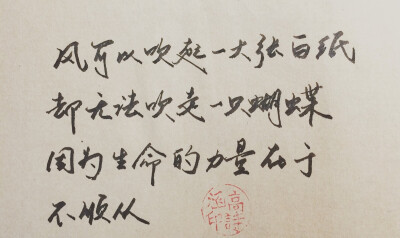 风可以吹起一大张白纸
却无法吹走一只蝴蝶
因为生命的力量在于
不顺从